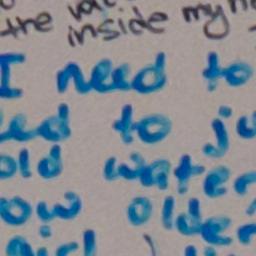 the voi
inside my h
I need to
ed to ju
old water
ow older
girl